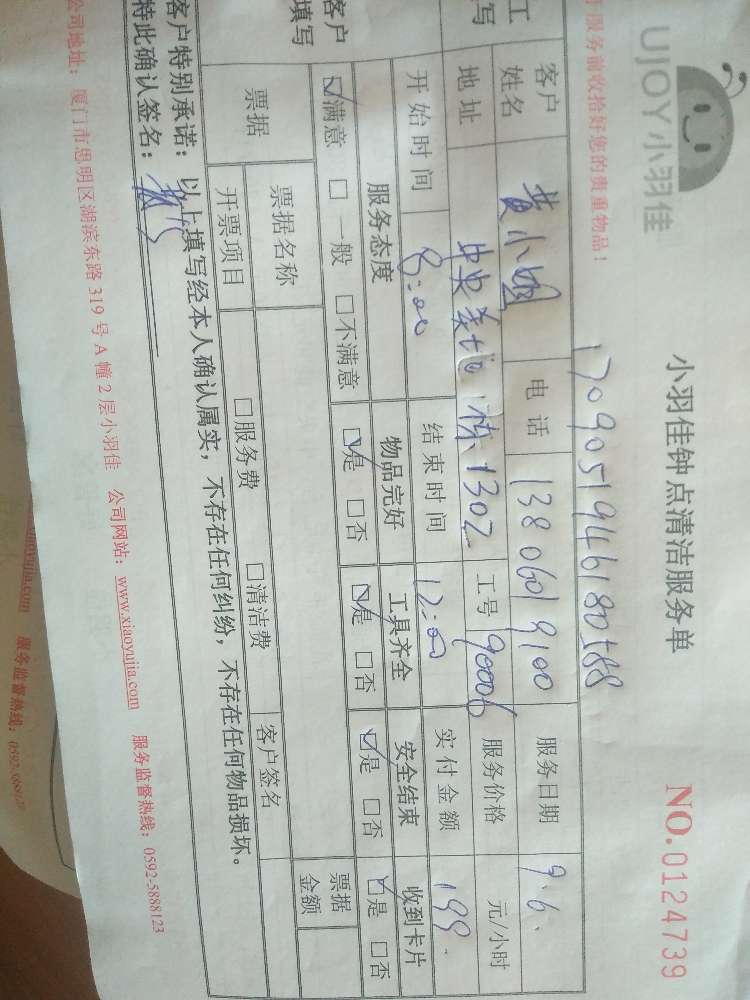 UJOY小羽佳
小羽佳钟点清洁服务单
NO.0124739
服务前收拾好您的贵重物品！
17090519461801588
工 写
客户姓名 黄小姐 电话 13806019100 服务日期 9.6.
地址 中央美地1栋1302 工号 90006 服务价格 元/小时
开始时间 8:00 结束时间 12:00 实付金额 199.
客户 填写
服务态度 物品完好 工具齐全 安全结束 收到卡片
☑满意 □一般 □不满意 ☑是 □否 ☑是 □否 ☑是 □否 ☑是 □否
票据 票据名称 客户签名 票据金额
开票项目 □服务费 □清洁费
客户特别承诺：以上填写经本人确认属实，不存在任何纠纷，不存在任何物品损坏。
特此确认签名：
公司地址：厦门市思明区湖滨东路319号A幢2层小羽佳 公司网站：www.xiaoyujia.com 服务监督热线：0592-5888123
xiaoyujia.com 服务监督热线：0592-5888123